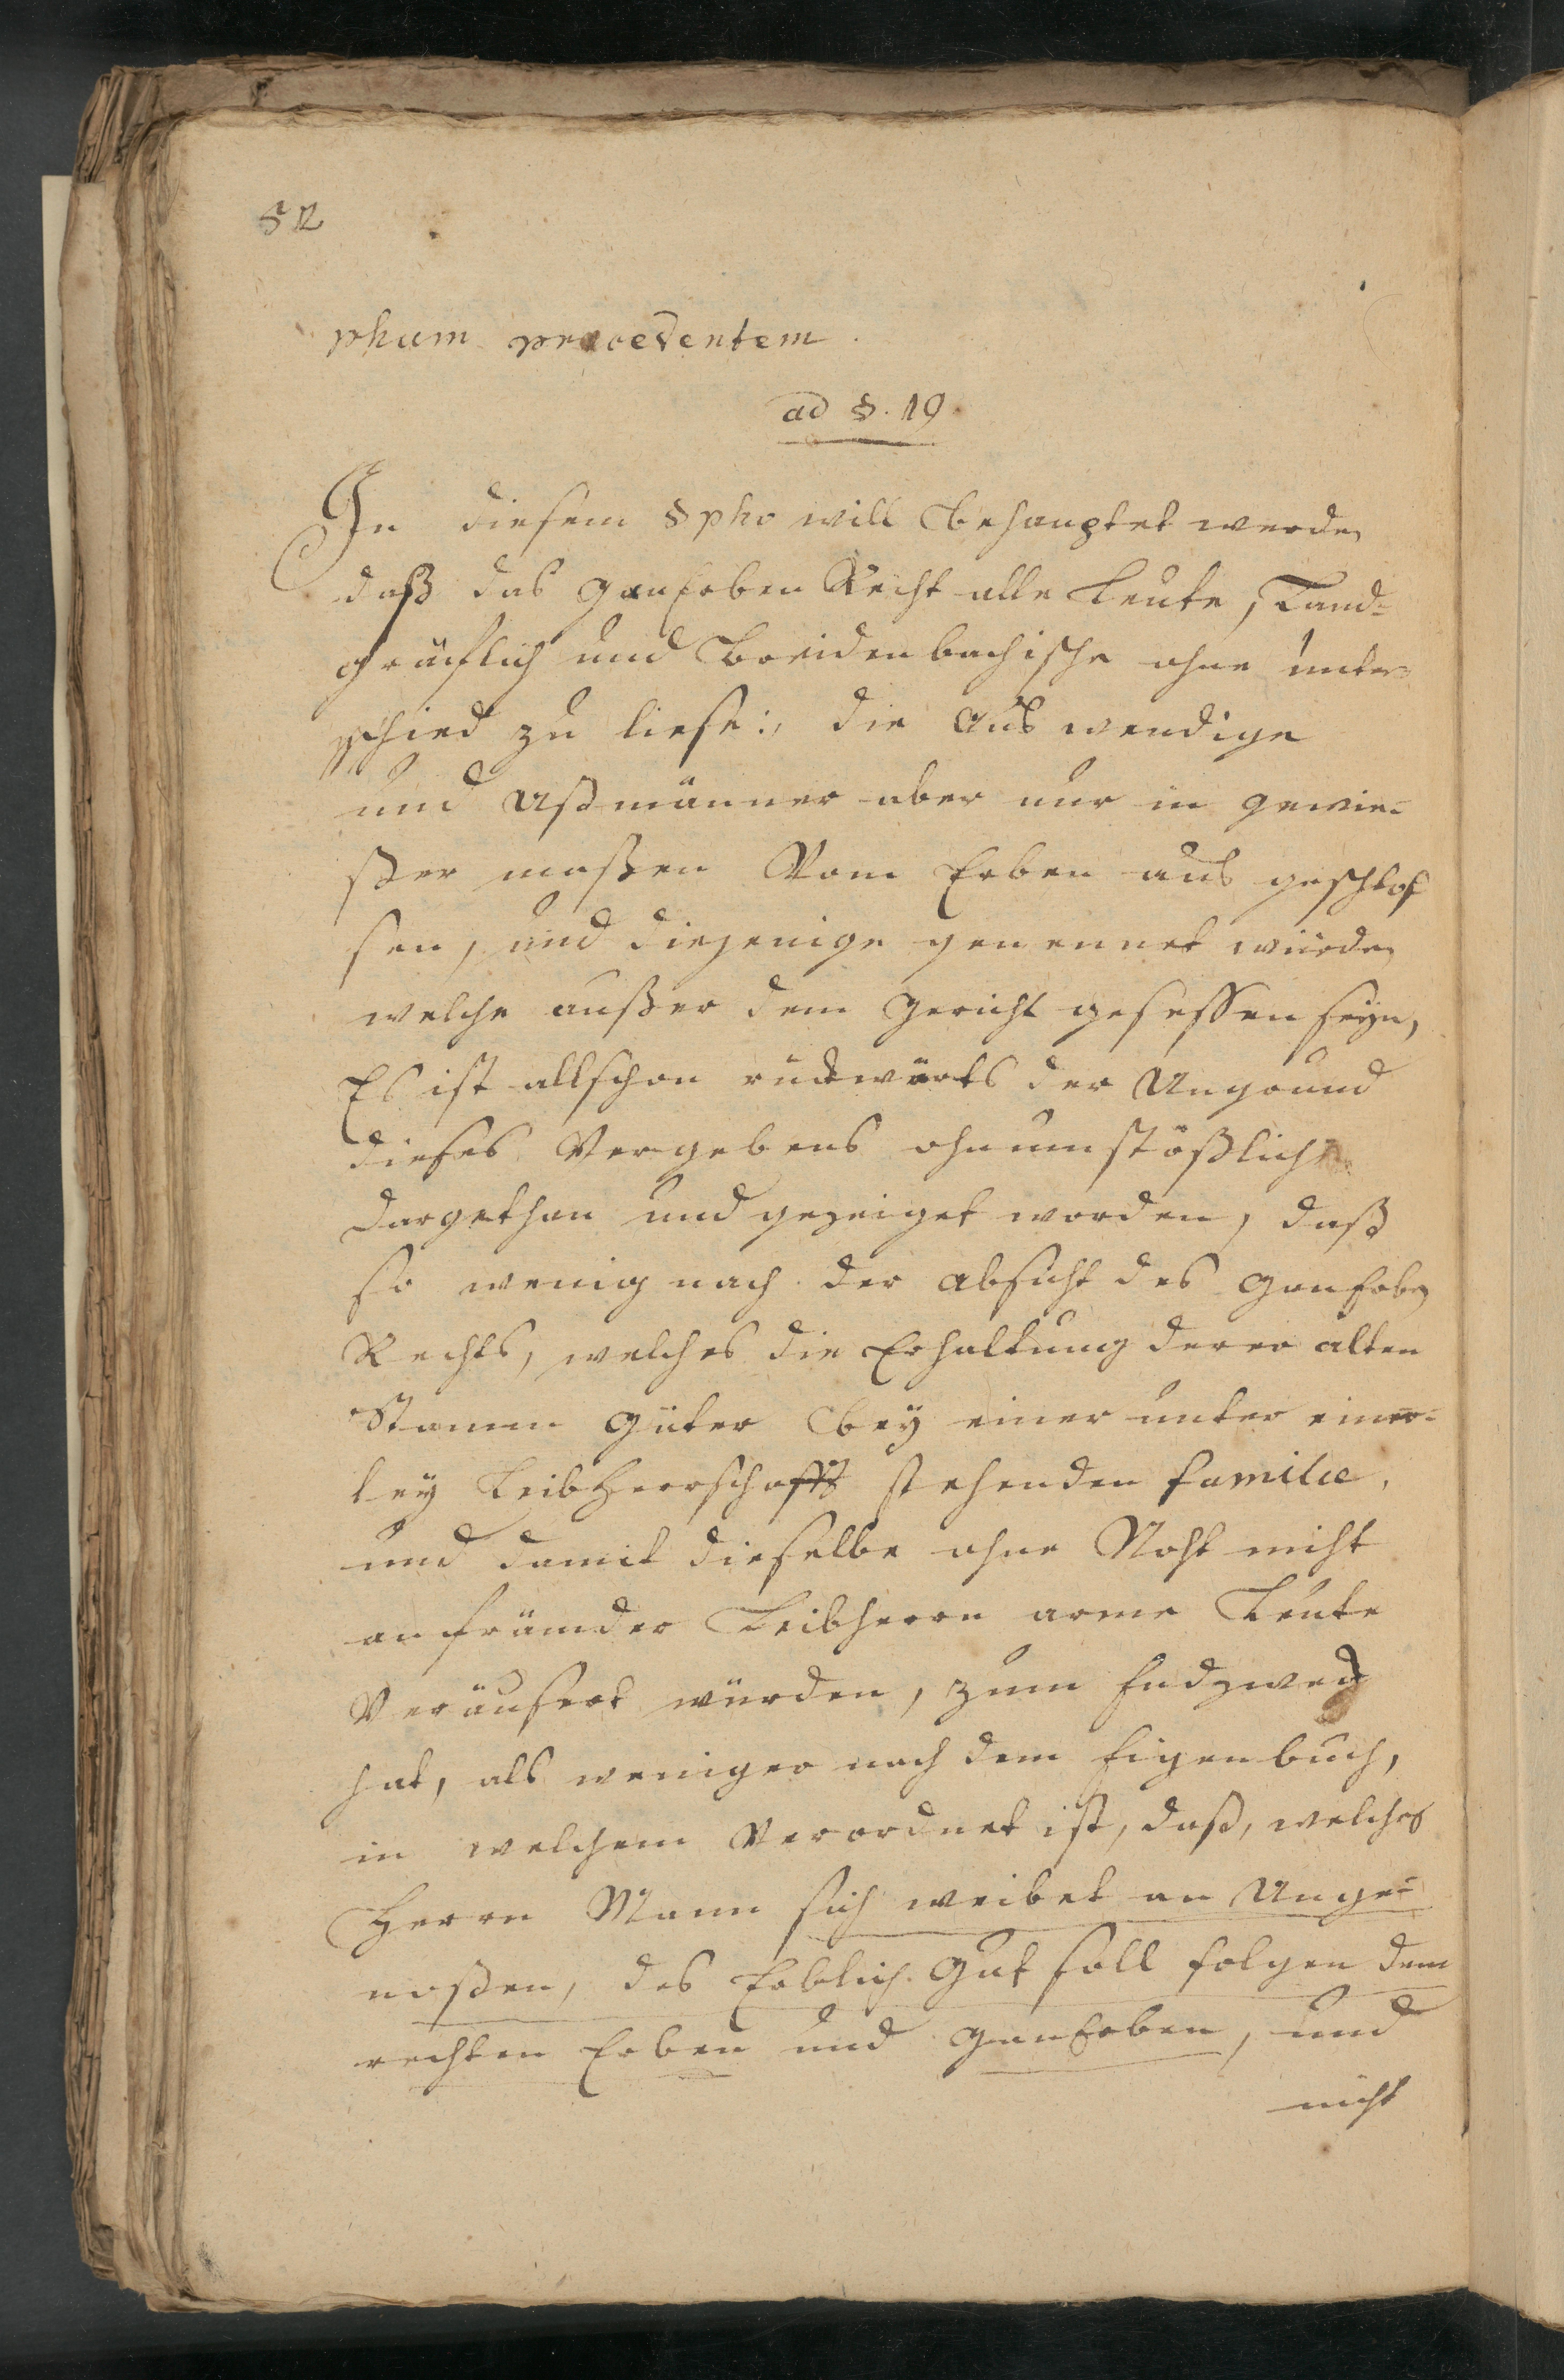 52
phum praecedentem.
ad §. 19.
In diesem §pho will behauptet werden
daß das GanErben Recht alle Leute, Land-
gräflich und Breidenbachische ohne unter-
schied zu liese:, die Aus wendige
und Ußmänner aber nur in gewie-
ßer maßen Vom Erben aus geschloß
sen, und diejenige genennet würden
welche außer dem Gericht gesessen seyn,
Es ist allschon rückwärts der Ungrund
dieses Vergebens ohnumstößlich
dargethan und gezeiget worden, daß
so wenig nach der Absicht des GanErben
Rechts, welches die Erhaltung derer alten
Stamm Güter bey einer unter einer-
ley LeibHerrschafft stehenden familie,
und damit dieselbe ohne Noht nicht
an främder Leibherrn arme Leute
Veräusert würden, zum Endzweck
hat, als weniger nach dem Eigenbuch,
in welchem Verordnet ist, daß, welches
Herrn Mann sich weibet an Unge-
noßen, des Erblich Gut soll folgen dem
rechten Erben und GanErben, und
nicht